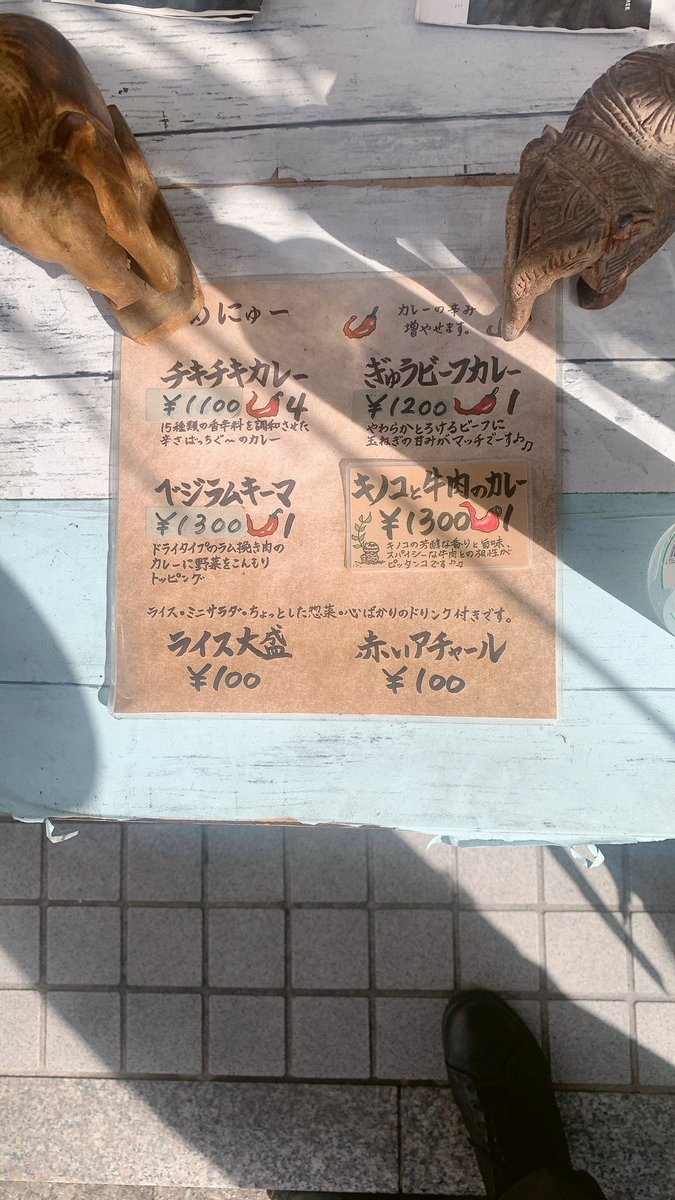 めにゅー
カレーの辛み
増やせます。
チキチキカレー
¥1100 4
15種類の香辛料を調和させた
辛さばっちぐ〜のカレー
ぎゅうビーフカレー
¥1200 1
やわらかとろけるビーフに
玉ねぎの甘みがマッチでーす♪♫
ベジラムキーマ
¥1300 1
ドライタイプのラム挽き肉の
カレーに野菜をこんもり
トッピング
キノコと牛肉のカレー
¥1300 1
キノコの芳醇な香りと旨味、
スパイシーな牛肉との相性が
ピッタンコです♪♫
ライス・ミニサラダ・ちょっとした惣菜・心ばかりのドリンク付きです。
ライス大盛
¥100
赤いアチャール
¥100